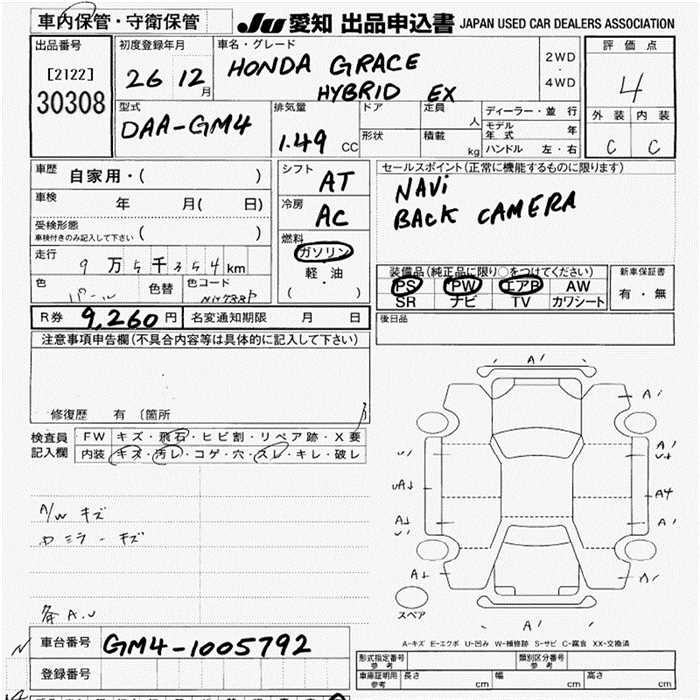 車内保管・守衛保管
JU 愛知 出品申込書 JAPAN USED CAR DEALERS ASSOCIATION
出品番号
[2122]
30308
初度登録年月
26 12 月
車名・グレード
HONDA GRACE
HYBRID EX
2WD
・
4WD
評価点
4
外装 内装
C C
型式
DAA-GM4
排気量
1.49 CC
ドア
形状
定員
人
積載
kg
ディーラー・並行
モデル年式 年
ハンドル 左・右
車歴
自家用・( )
車検
年 月( 日)
受検形態
車検付きのみ記入して下さい ( )
走行
9万5千354km
色
パール
色替
色コード
シフト
AT
冷房
AC
燃料
ガソリン
・
軽・油
( )
セールスポイント(正常に機能するものに限ります)
NAVi
BACK CAMERA
装備品(純正品に限り○をつけてください)
PS PW エアB AW
SR ナビ TV カワシート
新車保証書
有・無
R券 9,260円
名変通知期限 月 日
後日品
注意事項申告欄(不具合内容等は具体的に記入して下さい)
修復歴 有 〔箇所
検査員
記入欄
FW キズ・飛石・ヒビ割・リペア跡・X要
内装 キズ・汚レ・コゲ・穴・スレ・キレ・破レ
A/W キズ
ミラーキズ
A1
A1
A1
U1
A4
A1
A1
スペア
A-キズ E-エクボ U-凹み W-補修跡 S-サビ C-腐食 XX-交換済
車台番号
GM4-1005792
登録番号
形式指定番号
参考
類別区分番号
参考
車庫証明用
参考
長さ cm 幅 cm 高さ cm